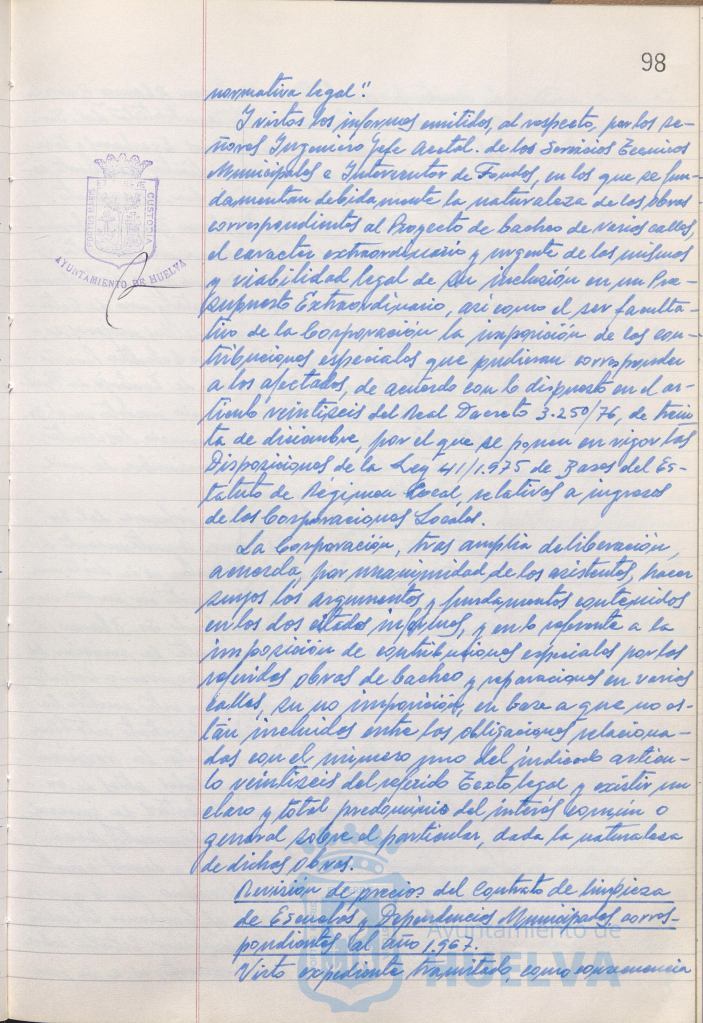 98
normativa legal".
Y vistos los informes emitidos, al respecto, por los se-
ñores Ingeniero Jefe acctal. de los Servicios Tecnicos
Municipales e Interventor de Fondos, en los que se fun-
damentan debidamente la naturaleza de las obras
correspondientes al Proyecto de bacheo de varias calles,
el caracter extraordinario y urgente de las mismas
y viabilidad legal de su inclusión en un Pre-
supuesto Extraordinario, así como el ser faculta-
tivo de la Corporación la imposición de las con-
tribuciones especiales que pudieran corresponder
a los afectados, de acuerdo con lo dispuesto en el ar-
tículo veintiseis del Real Decreto 3.250/76, de trein-
ta de diciembre, por el que se ponen en vigor las
Disposiciones de la Ley 41/1.975 de Bases del Es-
tatuto de Régimen Local, relativas a ingresos
de las Corporaciones Locales.
La Corporación, tras amplia deliberación,
acuerda, por unanimidad de los asistentes, hacer
suyos los argumentos y fundamentos contenidos
en los dos citados informes, y en lo referente a la
imposición de contribuciones especiales por las
referidas obras de bacheo y reparaciones en varias
calles, su no imposición, en base a que no es-
tán incluidas entre las obligaciones relaciona-
das con el número uno del indicado artícu-
lo veintiseis del referido Texto legal y existir un
claro y total predominio del interés común o
general sobre el particular, dada la naturaleza
de dichas obras.
Revisión de precios del Contrato de limpieza
de Escuelas y Dependencias Municipales corres-
pondientes al año 1.967.
Visto expediente tramitado, como consecuencia
CUSTODIA
AYUNTAMIENTO DE HUELVA
Ayuntamiento de
HUELVA